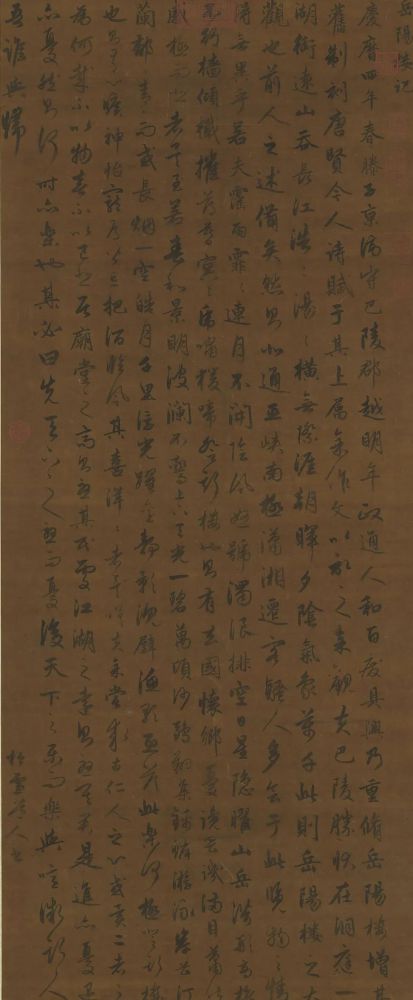 岳陽樓記
慶曆四年春滕子京謫守巴陵郡越明年政通人和百廢具興乃重脩岳陽樓增其
舊制刻唐賢今人詩賦于其上屬余作文以記之余觀夫巴陵勝狀在洞庭一
湖銜遠山吞長江浩〻湯〻橫無際涯朝暉夕陰氣象萬千此則岳陽樓之大
觀也前人之述備矣然則北通巫峽南極瀟湘遷客騷人多會于此覽物之情
得無異乎若夫霪雨霏〻連月不開陰風怒號濁浪排空日星隱曜山岳潛形商
不行檣傾檝摧薄暮冥〻虎嘯猿啼登斯樓也則有去國懷鄉憂讒畏譏滿目蕭然
感極而悲者矣至若春和景明波瀾不驚上下天光一碧萬頃沙鷗翔集錦鱗游泳岸芷汀
蘭郁〻青〻而或長煙一空皓月千里浮光躍金靜影沉璧漁歌互答此樂何極登斯樓
也則有心曠神怡寵辱皆忘把酒臨風其喜洋〻者矣嗟夫予嘗求古仁人之心或異二者之
為何哉不以物喜不以己悲居廟堂之高則憂其民處江湖之遠則憂其君是進亦憂退
亦憂然則何時而樂也其必曰先天下之憂而憂後天下之樂而樂歟噫微斯人
吾誰與歸
松雪道人書